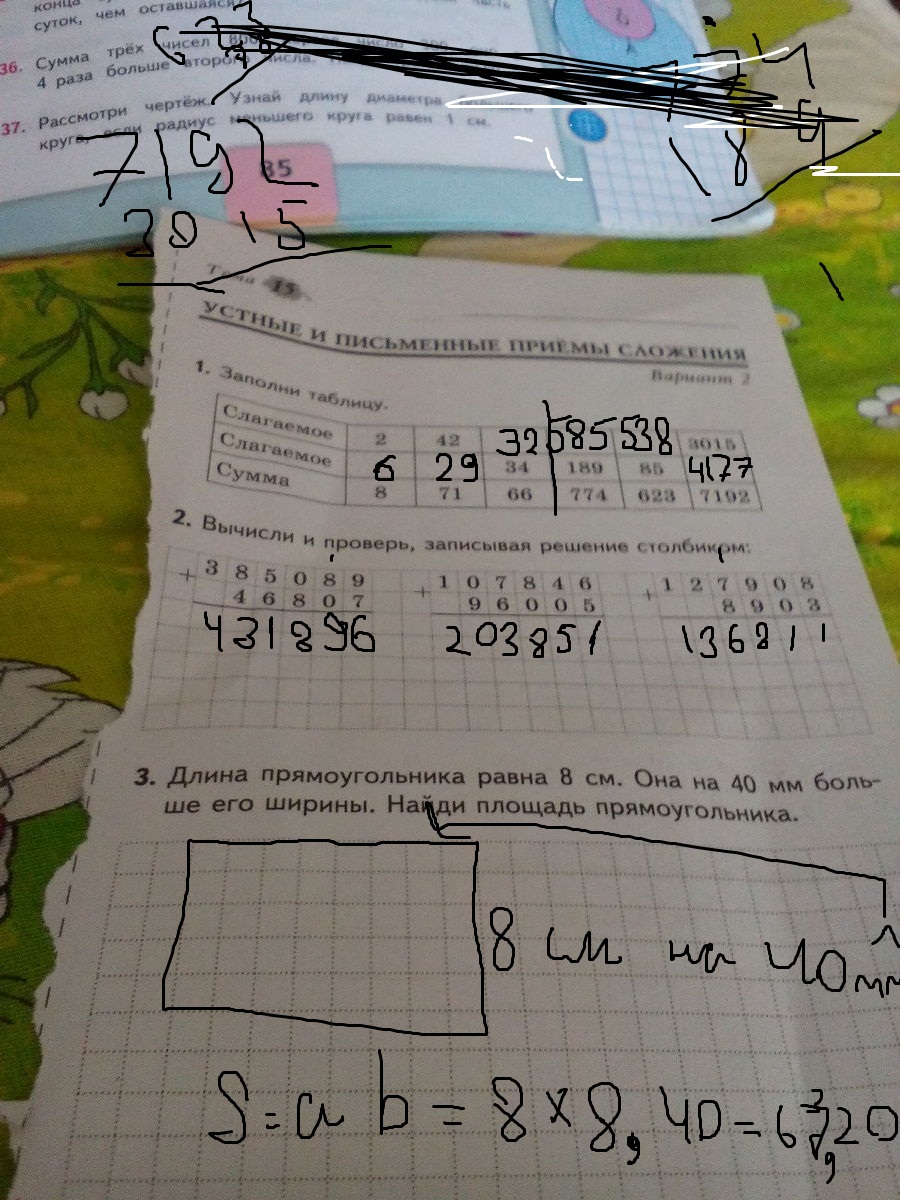 конца
суток, чем оставшаяся часть
36. Сумма трёх чисел 800
4 раза больше второго числа.
37. Рассмотри чертёж. Узнай длину диаметра
круга, если радиус меньшего круга равен 1 см.
85
7192
3015
18
Тема 15
УСТНЫЕ И ПИСЬМЕННЫЕ ПРИЁМЫ СЛОЖЕНИЯ
Вариант 2
1. Заполни таблицу.
Слагаемое 2 42 32 585 538 3015
Слагаемое 6 29 34 189 85 4177
Сумма 8 71 66 774 623 7192
2. Вычисли и проверь, записывая решение столбиком:
+ 3 8 5 0 8 9 + 1 0 7 8 4 6 + 1 2 7 9 0 8
4 6 8 0 7 9 6 0 0 5 8 9 0 3
431896 203851 136811
3. Длина прямоугольника равна 8 см. Она на 40 мм боль-
ше его ширины. Найди площадь прямоугольника.
8 см на 40 мм
S = a b = 8 × 8,40 =